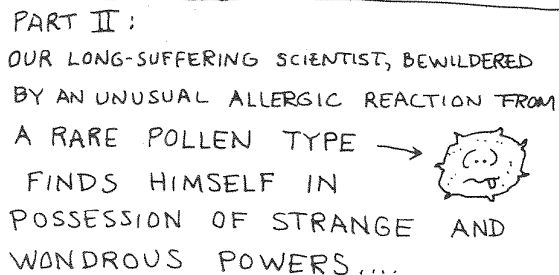 PART II:
OUR LONG-SUFFERING SCIENTIST, BEWILDERED
BY AN UNUSUAL ALLERGIC REACTION FROM
A RARE POLLEN TYPE →
FINDS HIMSELF IN
POSSESSION OF STRANGE AND
WONDROUS POWERS....